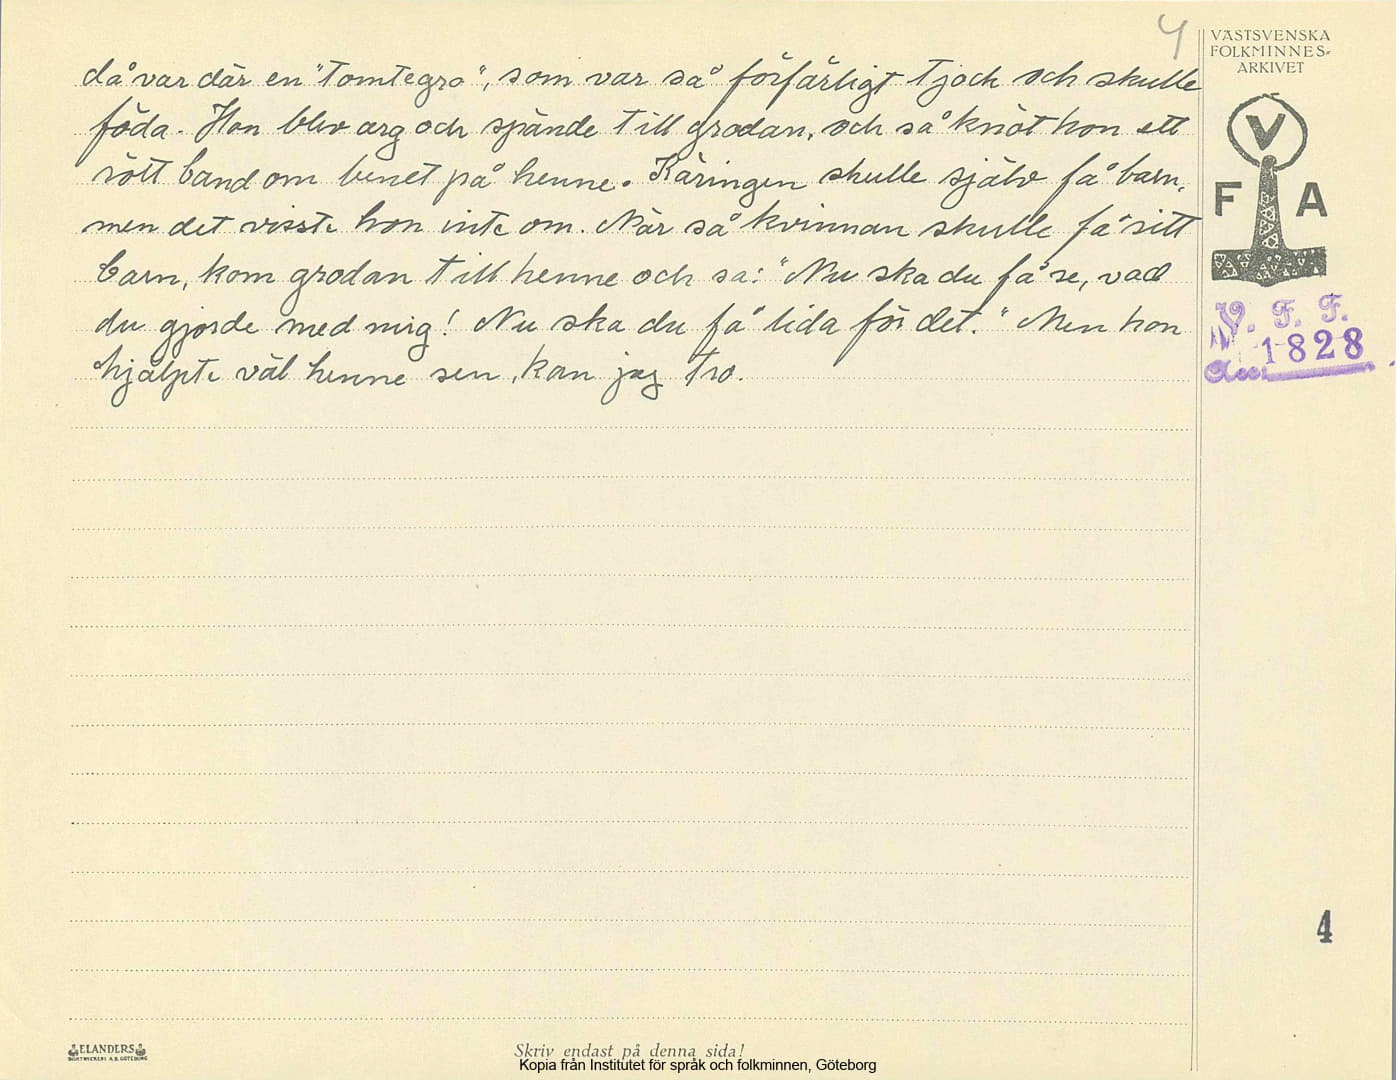 4
VÄSTSVENSKA
FOLKMINNES-
ARKIVET
då var där en "Tomtegro", som var så förfärligt tjock och skulle
föda. Hon blev arg och spände till grodan, och så knöt hon ett
rött band om benet på henne. Käringen skulle själv få barn,
men det visste hon inte om. När så kvinnan skulle få sitt
barn, kom grodan till henne och sa: "Nu ska du få se, vad
du gjorde med mig! Nu ska du få lida för det." Men hon
hjälpte väl henne sen, kan jag tro.
V
F A
V. F. F.
Acc: 1828
4
ELANDERS
BOKTRYCKERI A.B. GÖTEBORG
Skriv endast på denna sida!
Kopia från Institutet för språk och folkminnen, Göteborg